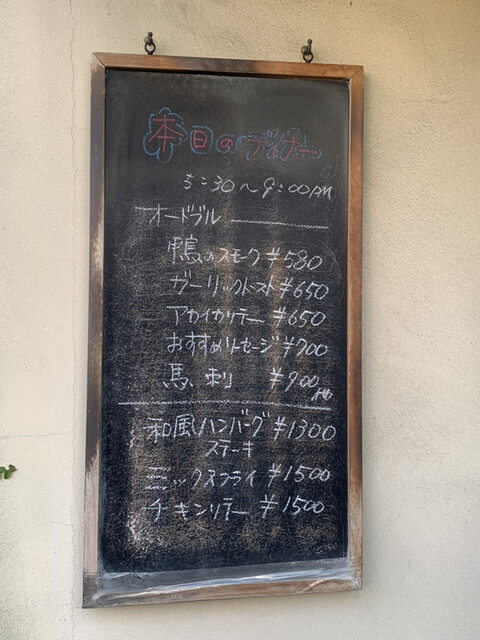 本日のディナー
5:30～9:00PM
オードブル
鴨のスモーク ¥580
ガーリックトースト ¥650
アカイカソテー ¥650
おすすめソーセージ ¥700
馬刺 ¥900
和風ハンバーグ ¥1300
ステーキ
ミックスフライ ¥1500
チキンソテー ¥1500